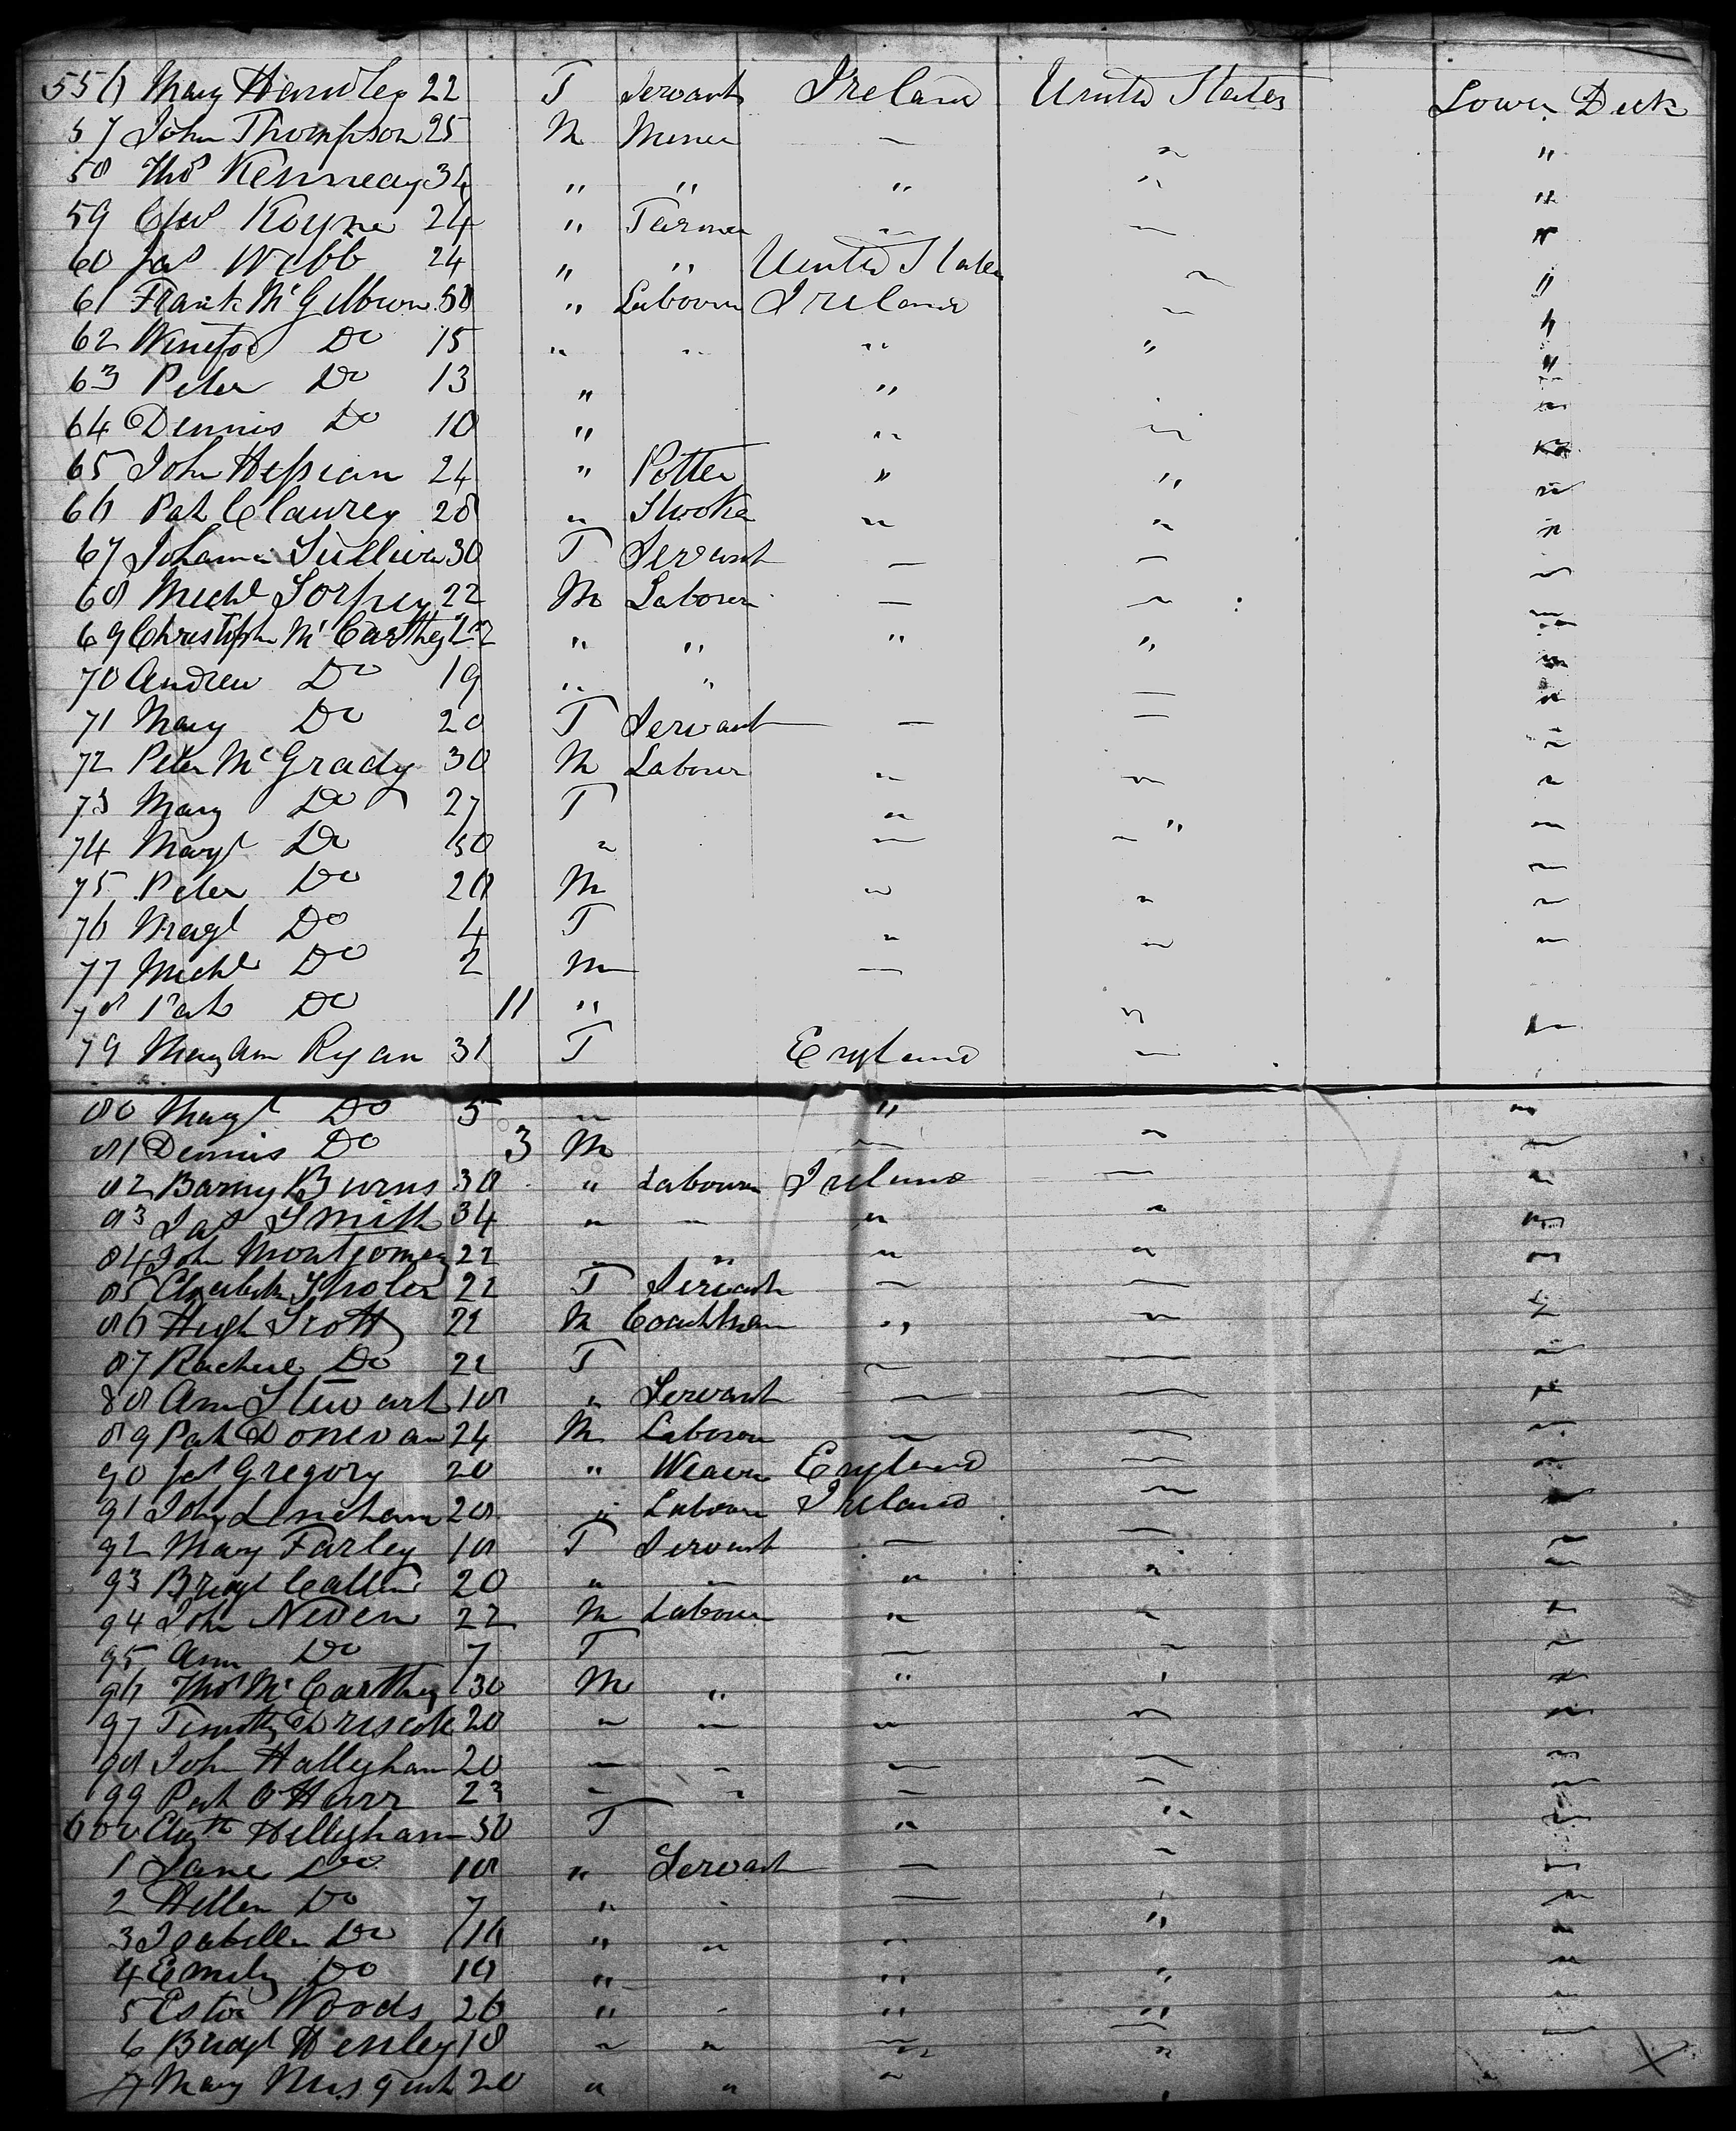 556 Mary Handley 22 F Servant Ireland United States Lower Deck
57 John Thompson 25 M Miner — " "
58 Thos Kenneay 34 " " " " "
59 Chas Koyne 24 " Farmer " — "
60 Jas Webb 24 " " United States " "
61 Frank McGilbown 50 " Labourer Ireland " "
62 Winefod Do 15 " " " " "
63 Peter Do 13 " " "
64 Dennis Do 10 " " " "
65 John Hessian 24 " Potter " " "
66 Pat Claurey 28 " " " "
67 Johanna Sullivan 30 F Servant — — "
68 Michl 22 M Labourer — " "
69 Christopher McCarthey 22 " " " " "
70 Andrew Do 19 " " — "
71 Mary Do 20 F Servant — — "
72 Peter McGrady 30 M Labour " " "
73 Mary Do 27 F " " "
74 Margt Do 50 " — " "
75 Peter Do 28 M " " "
76 Margt Do 4 F " " "
77 Michl Do 2 M — "
78 Pat Do 11 " "
79 Mary Ann Ryan 31 F England — "
80 Margt Do 5 " " "
81 Dennis Do 3 M — " "
82 Barny Burns 30 " Labourer Ireland — "
83 Jas Smith 34 " " " " "
84 John Montgomey 22 " " " " "
85 Elizabeth 22 F Servant — — "
86 Hugh Scott 22 M Coachman " " "
87 Rachel Do 22 F " — "
88 Ann Stewart 18 " Servant — — "
89 Pat Donevan 24 M Labourer — — "
90 Jas Gregory 20 " Weaver England — "
91 John Lineham 20 " Labour Ireland — "
92 Mary Farley 18 F Servant — — "
93 Bridgt 20 " — " " "
94 John Neven 22 M Labour " " "
95 Ann Do 7 F — " "
96 Thos McCarthey 30 M " " " "
97 Timothy Driscole 20 " " " " "
98 John Hallyham 20 — " — — "
99 Pat O Harr 23 " " — — "
600 Elizth Hellyham 50 F " " "
1 Jane Do 18 " Servant — " "
2 Hellen Do 7 " " — " "
3 Isabella Do " " " " "
4 Emily Do " " " "
5 Woods 20 " " " " "
6 Bridgt Henley 18 " " — " —
7 Mary 20 " " " "
X